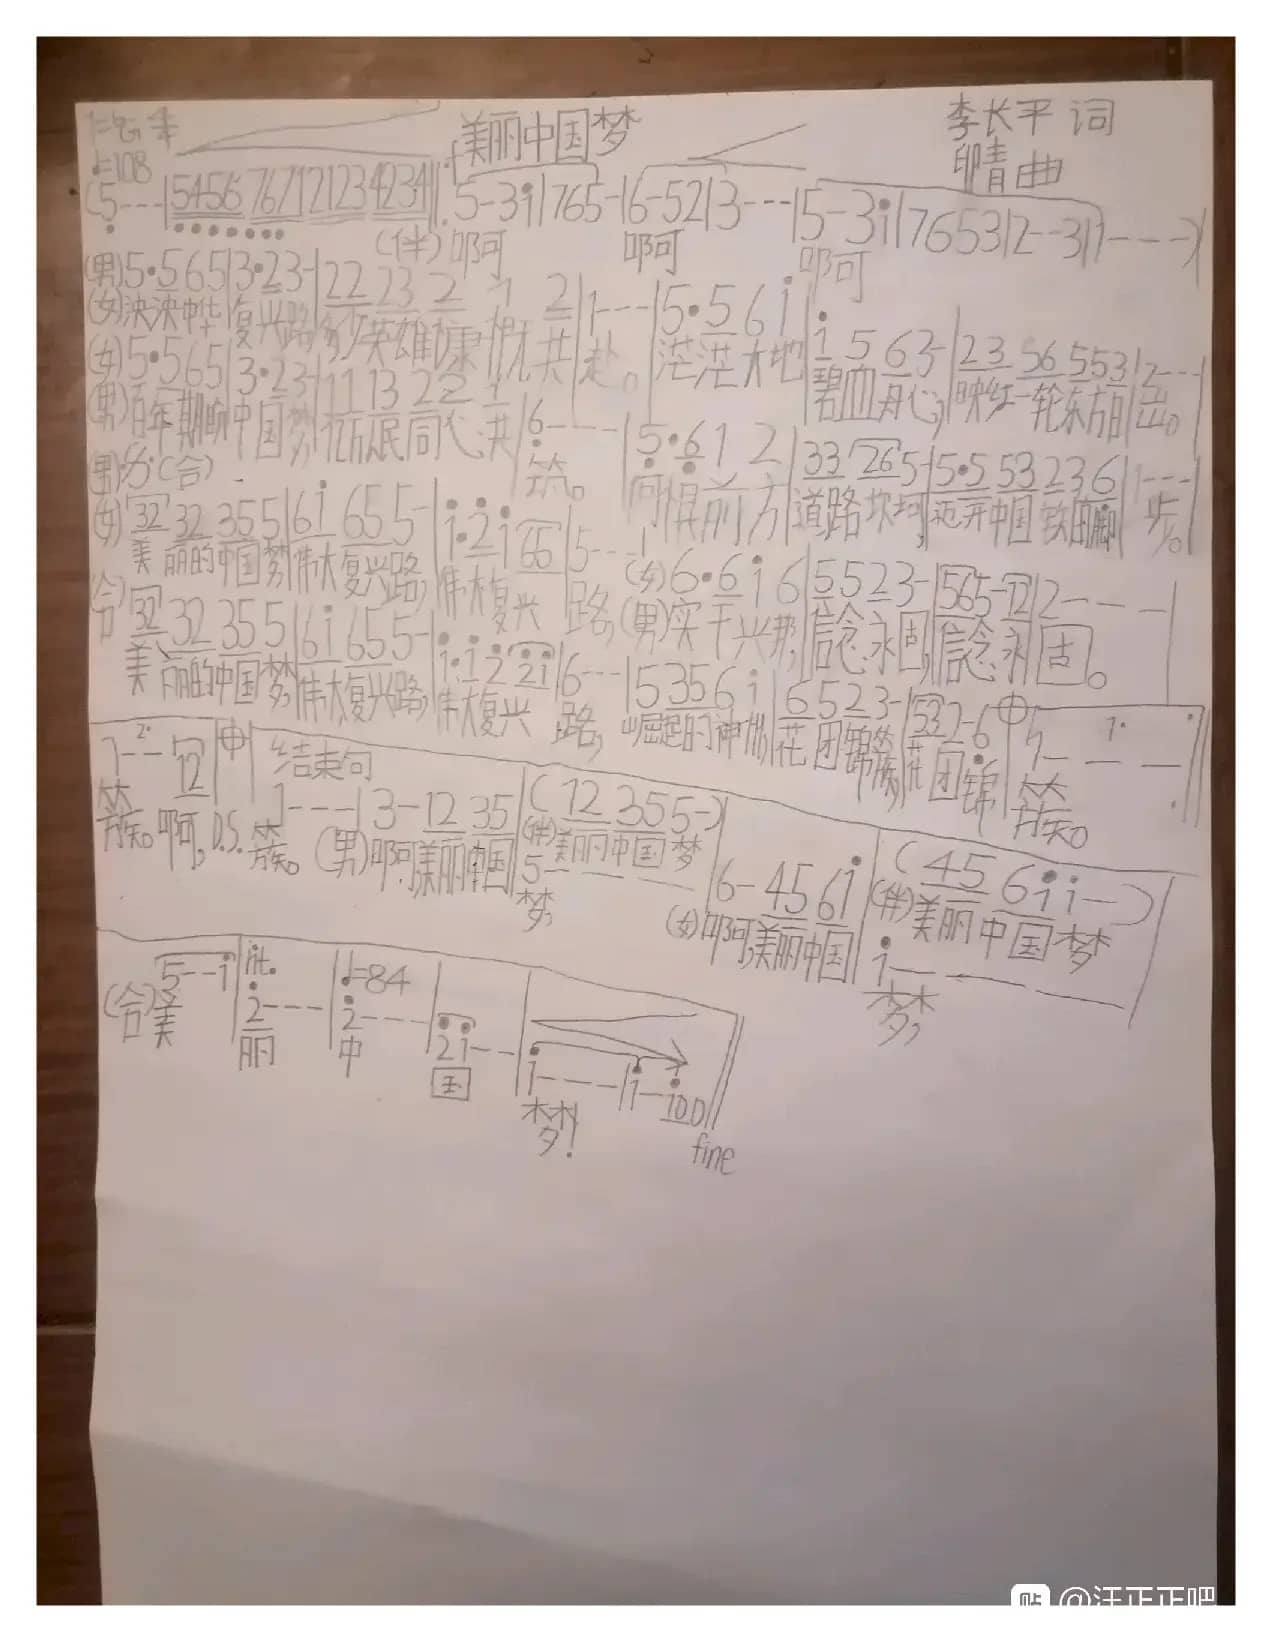 美丽中国梦 李长平 词
♩=108 印青 曲
(5---|5456 7671 2123 4234|f 5-3i|765-|6-52|3---|5-3i|7653|2--3|1---)
(伴)啊 啊 啊
(男)5·565|3·23-|22 23 2 1 2|1---|5·56i|i563-|23 56 553|2---
(女)泱泱中华 复兴路 多少英雄慷慨共赴。 茫茫大地 碧血丹心, 映红一轮东方日出。
(女)5·565|3·23-|11 13 22 1|6---|5·612|33 26 5-|5·5 53 23 6|1---
(男)百年期盼 中国梦, 亿万人民同心共筑。 何惧前方 道路坎坷, 迈开中国 的脚步。
(男)(合)
(女)32 32 35 5|6i 65 5-|i·2i 65|5---|(女)6·6i6|5523-|565-12|2---
美丽的中国梦 伟大复兴路, 伟大复兴路, (男)实干兴邦, 信念永固, 信念永固。
合)32 32 35 5|6i 65 5-|i·i2 2i|6---|5 35 6i|6523-|532-6|1---
美丽的中国梦, 伟大复兴路, 伟大复兴路, 崛起的神州, 花团锦簇, 花团锦簇。
2· 1--12 结束句
簇。啊, D.S. 1---|3-12 35|(12 35 5-)
簇。(男)啊,美丽中国 (伴)美丽中国梦
5--- 梦,
6-45 6i|(45 6i i-)
(女)啊,美丽中国 (伴)美丽中国梦
i--- 梦,
(合)5--i|rit. 2---|♩=84 2---|2i--|i---|i-i00
美 丽 中 国 梦! fine
@汪正正吧